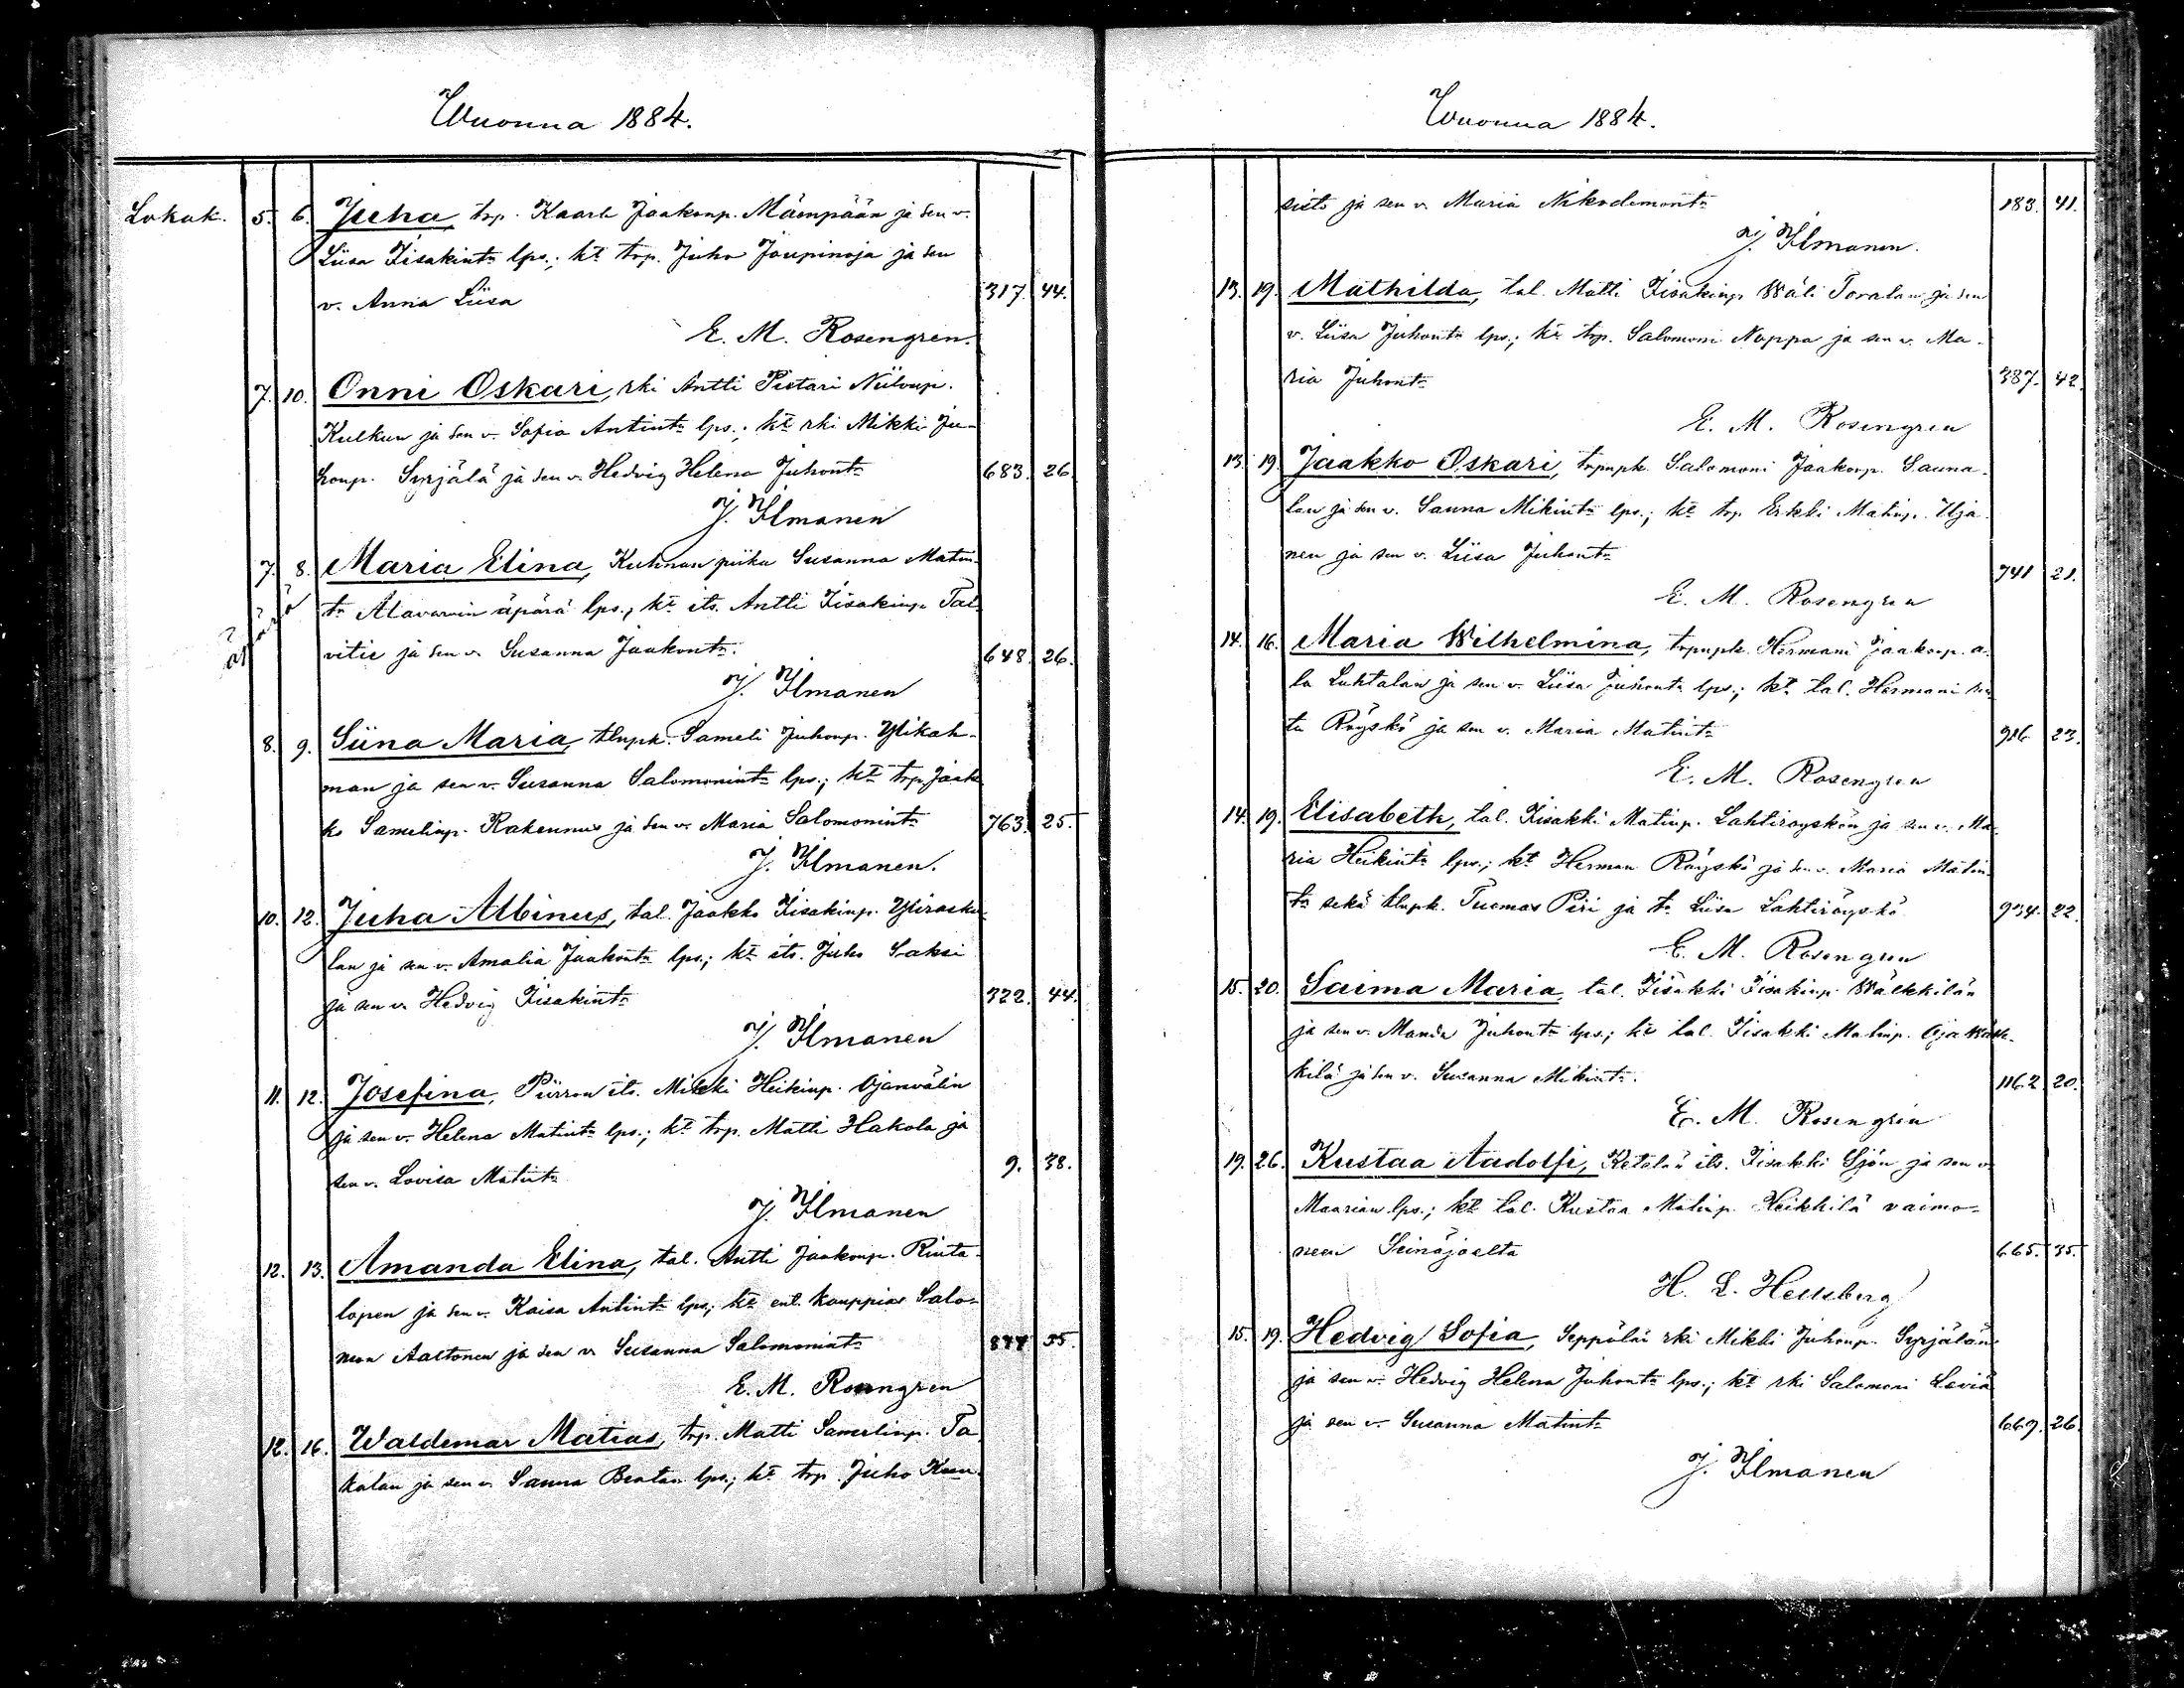 Wuonna 1884.
Lokak. 5. 6. Juha, trp. Kaarle Jaakonp. Mäenpään ja sen v.
Liisa Iisakint:n lps.; kt trp. Juho Joupinoja ja sen
v. Anna Liisa 317. 44.
E. M. Rosengren.
7. 10. Onni Oskari, rki Antti Pietari Niilonp.
Kulkun ja sen v. Sofia Antint:n lps.; kt rki Mikki Ju-
honp. Syrjälä ja sen v. Hedvig Helena Juhont:n 683. 26.
J. Ilmanen
7. 8. Maria Elina, Kuhnan piika Susanna Matin-
äpärä t:n Alavarvin äpärä lps.; kt its. Antti Iisakinp. Tal-
vitie ja sen v. Susanna Jaakont:n. 648. 26.
J. Ilmanen
8. 9. Siina Maria, tlnpk. Sameli Juhonp. Ylikah-
man ja sen v. Susanna Salomonint:n lps.; kt trp. Jaak-
ko Samelinp. Rakennus ja sen v. Maria Salomonint:n 763. 25.
J. Ilmanen.
10. 12. Juha Albinus, tal. Jaakko Iisakinp. Ylirasku-
lan ja sen v. Amalia Jaakont:n lps.; kt its. Juho Saksi
ja sen v. Hedvig Iisakint:n 322. 44.
J. Ilmanen
11. 12. Josefina, Piirron its. Mikki Heikinp. Ojanvälin
ja sen v. Helena Matint:n lps.; kt trp. Matti Hakola ja
sen v. Lovisa Matint:n 9. 38.
J. Ilmanen
12. 13. Amanda Elina, tal. Antti Jaakonp. Rinta-
lopen ja sen v. Kaisa Antint:n lps.; kt ent. kauppias Salo-
mon Aaltonen ja sen v. Susanna Salomonint:n 877 35.
E. M. Rosengren
12. 16. Waldemar Matias, trp. Matti Samelinp. Ta-
kalan ja sen v. Sanna Beatan lps.; kt trp. Juho Kuu-
Wuonna 1884.
sisto ja sen v. Maria Nikodemont:n 183. 41.
J. Ilmanen.
13. 19. Mathilda, tal. Matti Iisakinp. Wäli Toralan ja sen
v. Liisa Juhont:n lps.; kt trp. Salomoni Noppa ja sen v. Ma-
ria Juhont:n 387. 42.
E. M. Rosengren
13. 19. Jaakko Oskari, trpnpk. Salomoni Jaakonp. Sauna-
lan ja sen v. Sanna Mikint:n lps.; kt trp. Erkki Matinp. Uja-
nen ja sen v. Liisa Juhont:n 741 21.
E. M. Rosengren
14. 16. Maria Wilhelmina, trpnpk. Hermani Jaakonp. a-
la Luhtalan ja sen v. Liisa Juhont:n lps.; kt tal. Hermani
Röyskö ja sen v. Maria Matint:n 926 23.
E. M. Rosengren
14. 19. Elisabeth, tal. Iisakki Matinp. Lahtiröyskön ja sen v. Ma-
ria Heikint:n lps.; kt Herman Röyskö ja sen v. Maria Matin-
t:n sekä tlnpk. Tuomas Piri ja t:r Liisa Lahtiröyskö 934. 22.
E. M. Rosengren
15. 20. Saima Maria, tal. Iisakki Iisakinp. Wälkkilän
ja sen v. Manda Juhont:n lps.; kt tal. Iisakki Matinp. Oja Wälk-
kilä ja sen v. Susanna Mikint:n. 1162 20.
E. M. Rosengren
19. 26. Kustaa Aadolfi, Ketolan its. Iisakki Sjön ja sen v.
Maarian lps.; kt tal. Kustaa Matinp. Heikkilä vaimo-
neen Seinäjoelta 665. 35.
H. L. Hellsberg
15. 19. Hedvig Sofia, Seppälän rki Mikki Juhonp. Syrjälän
ja sen v. Hedvig Helena Juhont:n lps.; kt rki Salomoni Laviä
ja sen v. Susanna Matint:n 669. 26.
J. Ilmanen